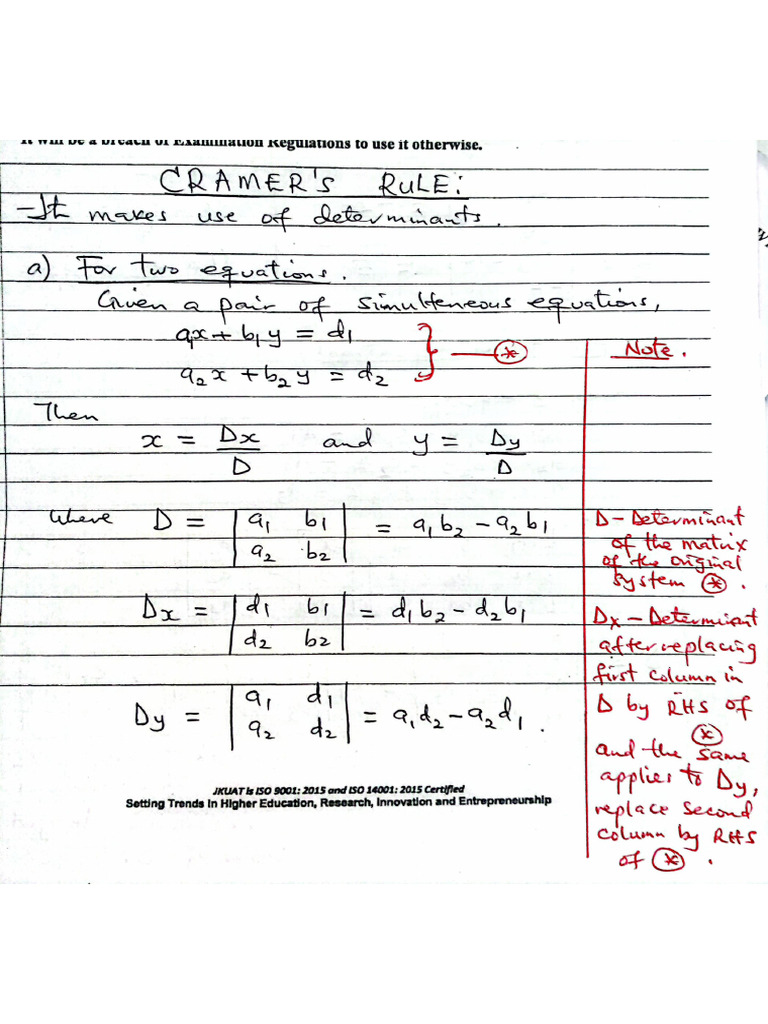 It will be a breach of Examination Regulations to use it otherwise.
CRAMER'S RULE:
- It makes use of determinants.
a) For two equations.
Given a pair of simulteneous equations,
a₁x + b₁y = d₁
a₂x + b₂y = d₂
⊛
Then
x = Dx/D and y = Dy/D
Where D = |a₁ b₁| = a₁b₂ - a₂b₁
|a₂ b₂|
Dx = |d₁ b₁| = d₁b₂ - d₂b₁
|d₂ b₂|
Dy = |a₁ d₁| = a₁d₂ - a₂d₁.
|a₂ d₂|
Note.
D - Determinant
of the matrix
of the original
system ⊛.
Dx - Determinant
after replacing
first column in
D by RHS of
⊛
and the same
applies to Dy,
replace second
column by RHS
of ⊛.
JKUAT is ISO 9001: 2015 and ISO 14001: 2015 Certified
Setting Trends in Higher Education, Research, Innovation and Entrepreneurship